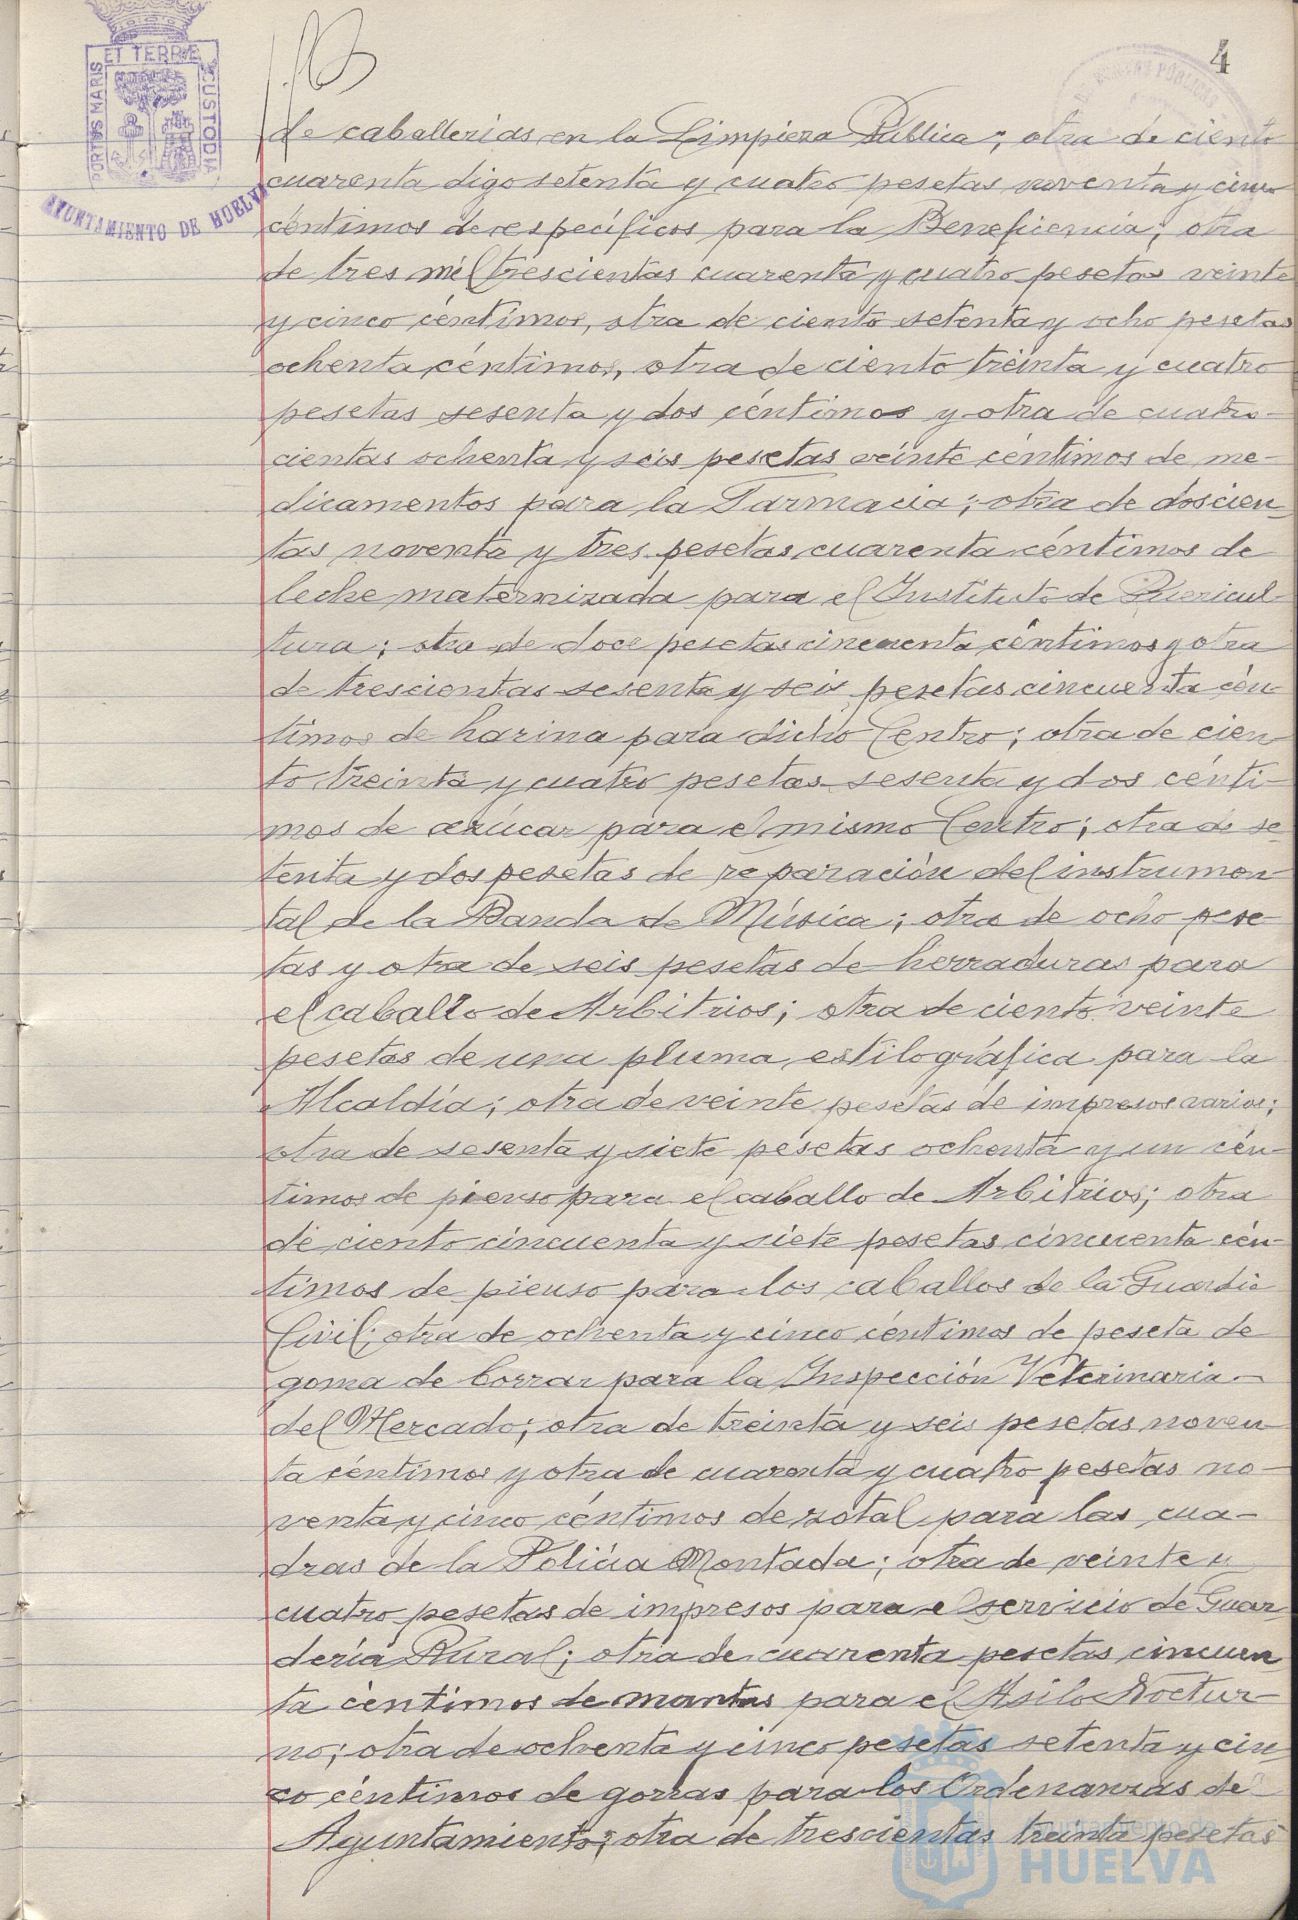 4
PORTUS MARIS ET TERRÆ CUSTODIA
AYUNTAMIENTO DE HUELVA
de caballerias en la Limpieza Pública; otra de ciento
cuarenta digo setenta y cuatro pesetas noventa y cinco
céntimos de específicos para la Beneficencia; otra
de tres mil trescientas cuarenta y cuatro pesetas veinte
y cinco céntimos, otra de ciento setenta y ocho pesetas
ochenta céntimos, otra de ciento treinta y cuatro
pesetas sesenta y dos céntimos y otra de cuatro-
cientas ochenta y seis pesetas veinte céntimos de me-
dicamentos para la Farmacia; otra de doscien-
tas noventa y tres pesetas cuarenta céntimos de
leche maternizada para el Instituto de Puericul-
tura; otra de doce pesetas cincuenta céntimos y otra
de trescientas sesenta y seis pesetas cincuenta cén-
timos de harina para dicho Centro; otra de cien-
to treinta y cuatro pesetas sesenta y dos cénti-
mos de azúcar para el mismo Centro; otra de se-
tenta y dos pesetas de reparación del instrumen-
tal de la Banda de Música; otra de ocho pese-
tas y otra de seis pesetas de herraduras para
el caballo de Arbitrios; otra de ciento veinte
pesetas de una pluma estilográfica para la
Alcaldía; otra de veinte pesetas de impresos varios;
otra de sesenta y siete pesetas ochenta y un cén-
timos de pienso para el caballo de Arbitrios; otra
de ciento cincuenta y siete pesetas cincuenta cén-
timos de pienso para los caballos de la Guardia
Civil; otra de ochenta y cinco céntimos de peseta de
goma de borrar para la Inspección Veterinaria-
del Mercado; otra de treinta y seis pesetas noven-
ta céntimos y otra de cuarenta y cuatro pesetas no-
venta y cinco céntimos de zotal para las cua-
dras de la Policía Montada; otra de veinte y
cuatro pesetas de impresos para el servicio de Guar-
dería Rural; otra de cuarenta pesetas cincuen
ta céntimos de mantas para el Asilo Noctur-
no; otra de ochenta y cinco pesetas setenta y cin
co céntimos de gorras para los Ordenanzas de
Ayuntamiento; otra de trescientas treinta pesetas
Ayuntamiento de
HUELVA